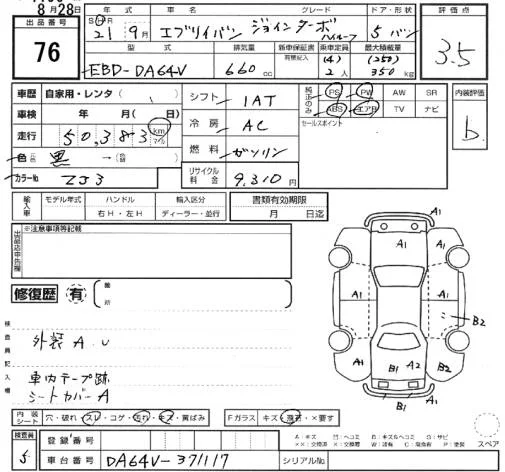 8月28日
出品番号
76
年式 車名 グレード ドア・形状
S H R 21 9月 エブリイバン ジョインターボ ハイルーフ 5 バン
型式 排気量 新車保証書 有 記録簿 乗車定員 最大積載量
EBD-DA64V 660cc (4) 2人 (250) 350kg
評価点
3.5
車歴 自家用・レンタ( )
車検 年 月( 日)
走行 50,383 km マイル
色 元色 黒 →(色替 )
カラーNo. ZJ3
シフト 1AT
冷房 AC
燃料 ガソリン
リサイクル料金 9,310円
純正のみ PS PW AW SR
ABS エアB TV ナビ
セールスポイント
内装評価
b
輸入車 モデル年式 ハンドル 輸入区分
右H・左H ディーラー・並行
書類有効期限
月 日迄
出品店申告欄 ※注意事項等記載
修復歴 有 箇所
検査員記入欄
外装 A.U
車内テープ跡
シートカバーA
内装シート 穴・破れ・スレ・コゲ・汚れ・キズ・黄ばみ Fガラス キズ・飛石・×要す
検査員 5
登録番号
車台番号 DA64V-371117 シリアルNo.
A1
A1 A1
A1 A1 A1
B2
A1 A1 A1
B2 B2 A2 B2
B1 A1
A:キズ U:ヘコミ B:キズ&ヘコミ S:サビ
××:交換済 X:要交換 W:波有 C:腐食有 P:塗装
スペア